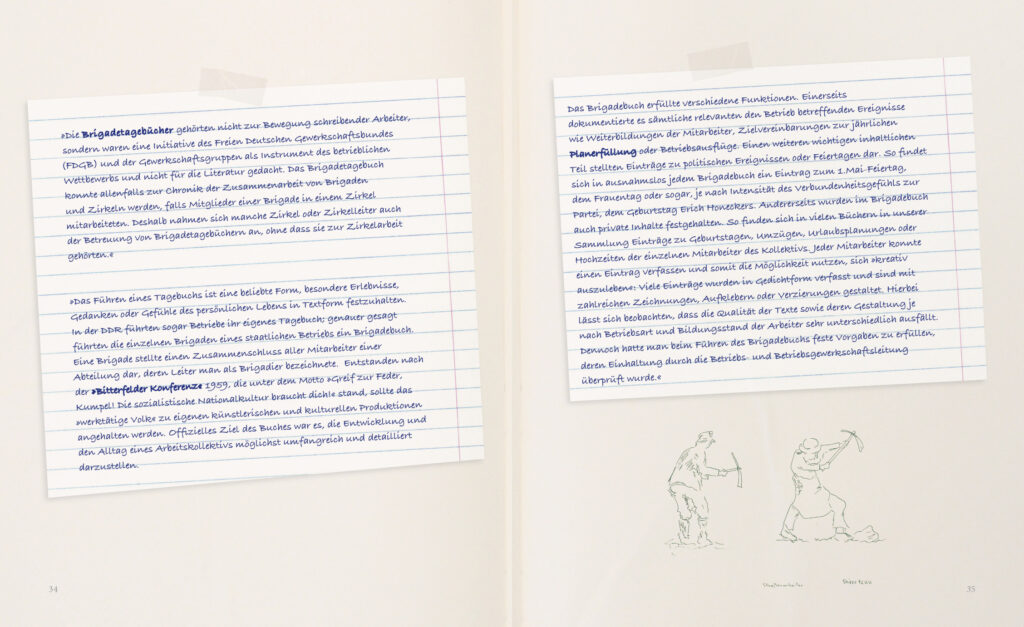 »Die Brigadetagebücher gehörten nicht zur Bewegung schreibender Arbeiter,
sondern waren eine Initiative des Freien Deutschen Gewerkschaftsbundes
(FDGB) und der Gewerkschaftsgruppen als Instrument des betrieblichen
Wettbewerbs und nicht für die Literatur gedacht. Das Brigadetagebuch
konnte allenfalls zur Chronik der Zusammenarbeit von Brigaden
und Zirkeln werden, falls Mitglieder einer Brigade in einem Zirkel
mitarbeiteten. Deshalb nahmen sich manche Zirkel oder Zirkelleiter auch
der Betreuung von Brigadetagebüchern an, ohne dass sie zur Zirkelarbeit
gehörten.«
»Das Führen eines Tagebuchs ist eine beliebte Form, besondere Erlebnisse,
Gedanken oder Gefühle des persönlichen Lebens in Textform festzuhalten.
In der DDR führten sogar Betriebe ihr eigenes Tagebuch; genauer gesagt
führten die einzelnen Brigaden eines staatlichen Betriebs ein Brigadebuch.
Eine Brigade stellte einen Zusammenschluss aller Mitarbeiter einer
Abteilung dar, deren Leiter man als Brigadier bezeichnete. Entstanden nach
der »Bitterfelder Konferenz« 1959, die unter dem Motto »Greif zur Feder,
Kumpel! Die sozialistische Nationalkultur braucht dich!« stand, sollte das
»werktätige Volk« zu eigenen künstlerischen und kulturellen Produktionen
angehalten werden. Offizielles Ziel des Buches war es, die Entwicklung und
den Alltag eines Arbeitskollektivs möglichst umfangreich und detailliert
darzustellen.
34
Das Brigadebuch erfüllte verschiedene Funktionen. Einerseits
dokumentierte es sämtliche relevanten den Betrieb betreffenden Ereignisse
wie Weiterbildungen der Mitarbeiter, Zielvereinbarungen zur jährlichen
Planerfüllung oder Betriebsausflüge. Einen weiteren wichtigen inhaltlichen
Teil stellten Einträge zu politischen Ereignissen oder Feiertagen dar. So findet
sich in ausnahmslos jedem Brigadebuch ein Eintrag zum 1. Mai-Feiertag,
dem Frauentag oder sogar, je nach Intensität des Verbundenheitsgefühls zur
Partei, dem Geburtstag Erich Honeckers. Andererseits wurden im Brigadebuch
auch private Inhalte festgehalten. So finden sich in vielen Büchern in unserer
Sammlung Einträge zu Geburtstagen, Umzügen, Urlaubsplanungen oder
Hochzeiten der einzelnen Mitarbeiter des Kollektivs. Jeder Mitarbeiter konnte
einen Eintrag verfassen und somit die Möglichkeit nutzen, sich »kreativ
auszuleben«: Viele Einträge wurden in Gedichtform verfasst und sind mit
zahlreichen Zeichnungen, Aufklebern oder Verzierungen gestaltet. Hierbei
lässt sich beobachten, dass die Qualität der Texte sowie deren Gestaltung je
nach Betriebsart und Bildungsstand der Arbeiter sehr unterschiedlich ausfällt.
Dennoch hatte man beim Führen des Brigadebuchs feste Vorgaben zu erfüllen,
deren Einhaltung durch die Betriebs- und Betriebsgewerkschaftsleitung
überprüft wurde.«
35